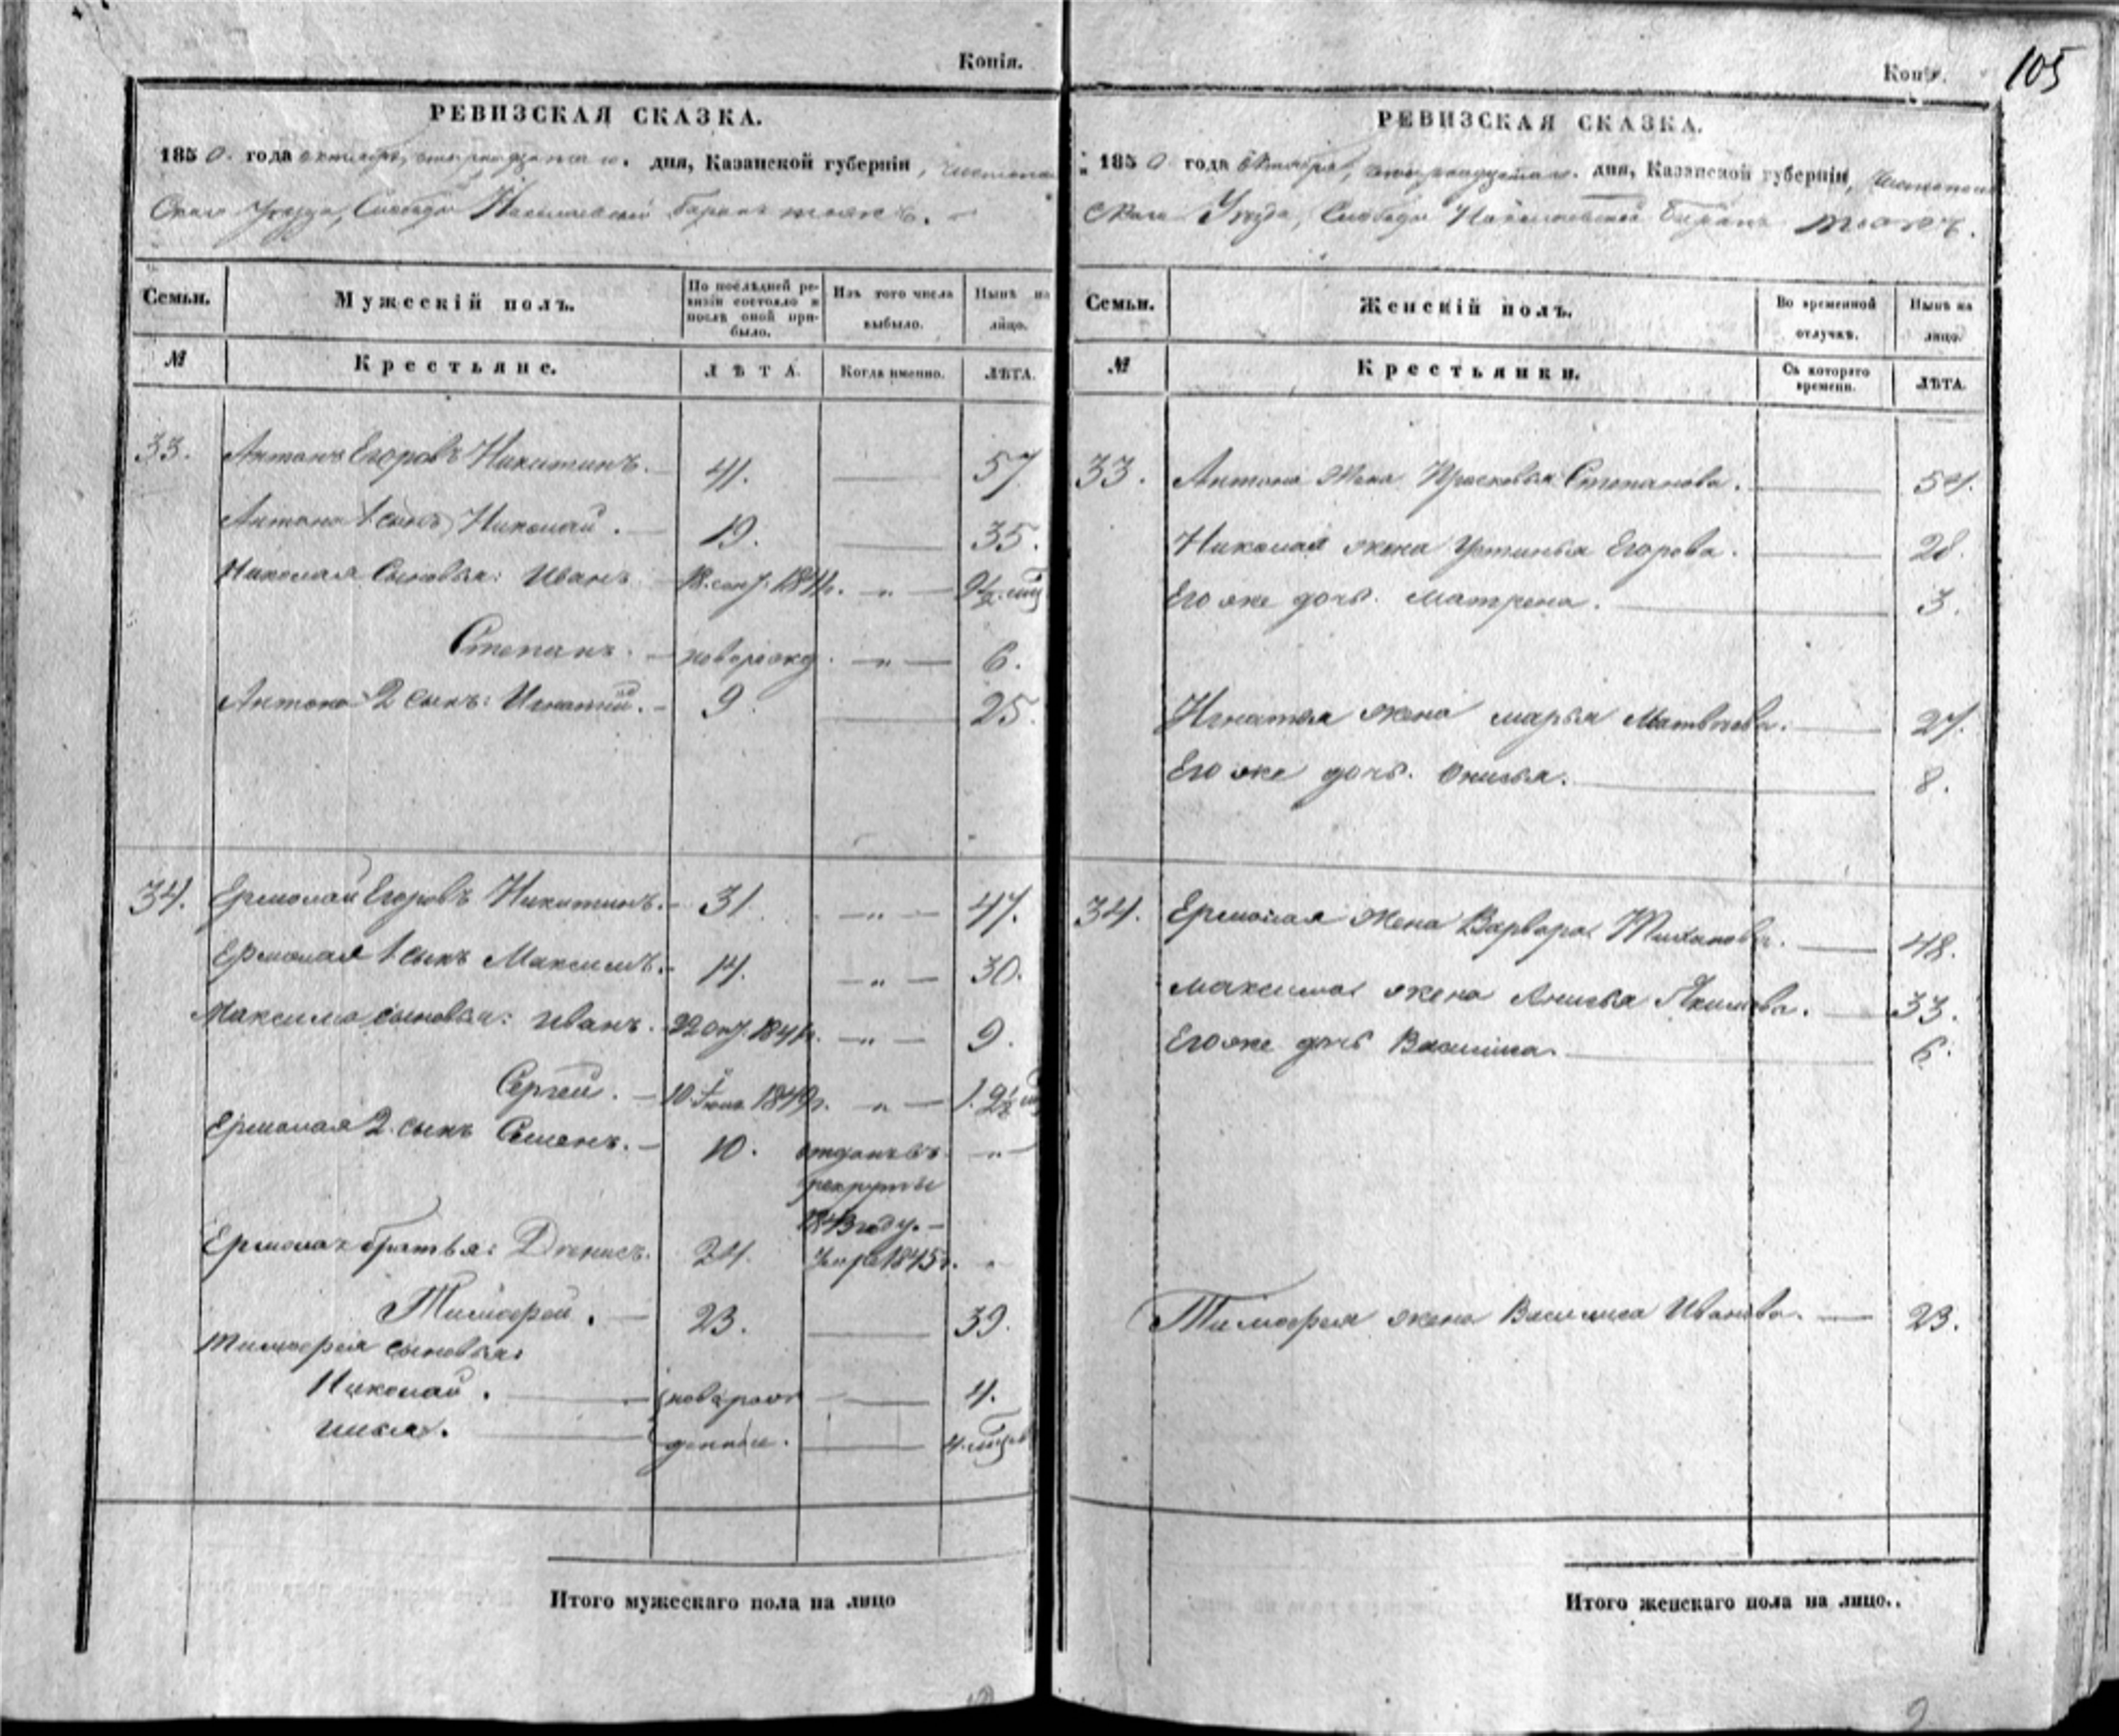 Копія.
РЕВИЗСКАЯ СКАЗКА.
1850. года октября, дня, Казанской губерніи,
Скаго Уезда, Слободы
Семьи.
Мужескій полъ.
По послѣдней ревизіи состояло и послѣ оной прибыло.
Изъ того числа выбыло.
Нынѣ на лицо.
№
Крестьяне.
ЛѢТА.
Когда именно.
ЛѢТА.
33. Антонъ Егоровъ Никитинъ. 41. 57
Антона 1 сынъ Николай. 19. 35.
Николая Сыновья: Иванъ 9½
Степанъ. новорожд. „ 6.
Антона 2 сынъ: Игнатій. 9. 25.
34. Ермолай Егоровъ Никитинъ. 31 „ 47.
Ермолая 1 сынъ Максимъ. 14. „ 30.
Максима сыновья: Иванъ. „ 9.
Сергей. 10 1849г. „
Ермолая 2. сынъ Семенъ. 10. отданъ въ „
рекруты
1843 году.
братья: Денисъ. 24. 1845г.
Тимофей. 23. 39.
Тимофея сыновья:
Николай. новорож 4.
Илья. денные. 4.
Итого мужескаго пола на лицо
105
Копія.
РЕВИЗСКАЯ СКАЗКА.
1850 года Октября, дня, Казанской губерніи,
скаго Уезда, Слободы
Семьи.
Женскій полъ.
Во временной отлучкѣ.
Нынѣ на лицо.
№
Крестьянки.
Съ котораго времени.
ЛѢТА.
33. Антона жена Прасковья Степанова. 54.
Николая жена Устинья Егорова. 28.
Его же дочь. Матрена. 3.
Игнатья жена Марья Матвѣева. 27.
Его же дочь. Онисья. 8.
34. Ермолая жена Варвара 48.
Максима жена Анисья Якимова. 33.
Его же дочь Василиса. 6.
Тимофея жена Василиса Иванова. 23.
Итого женскаго пола на лицо..